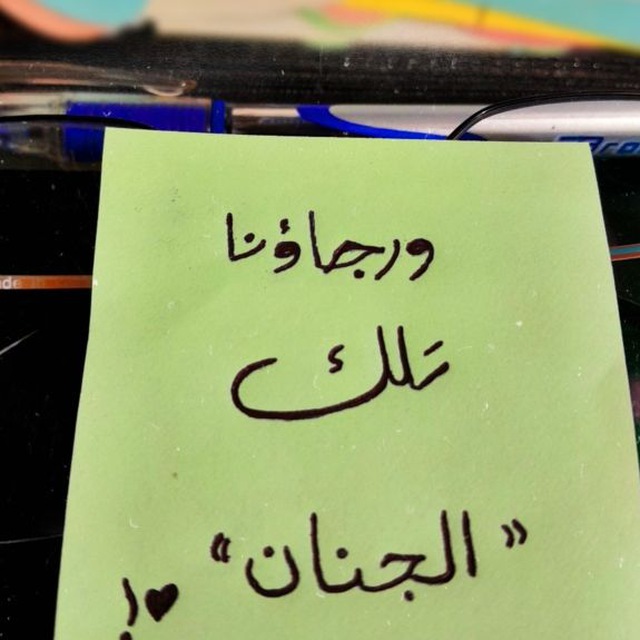 ورجاؤنا
تلك
"الجنان"
!♥